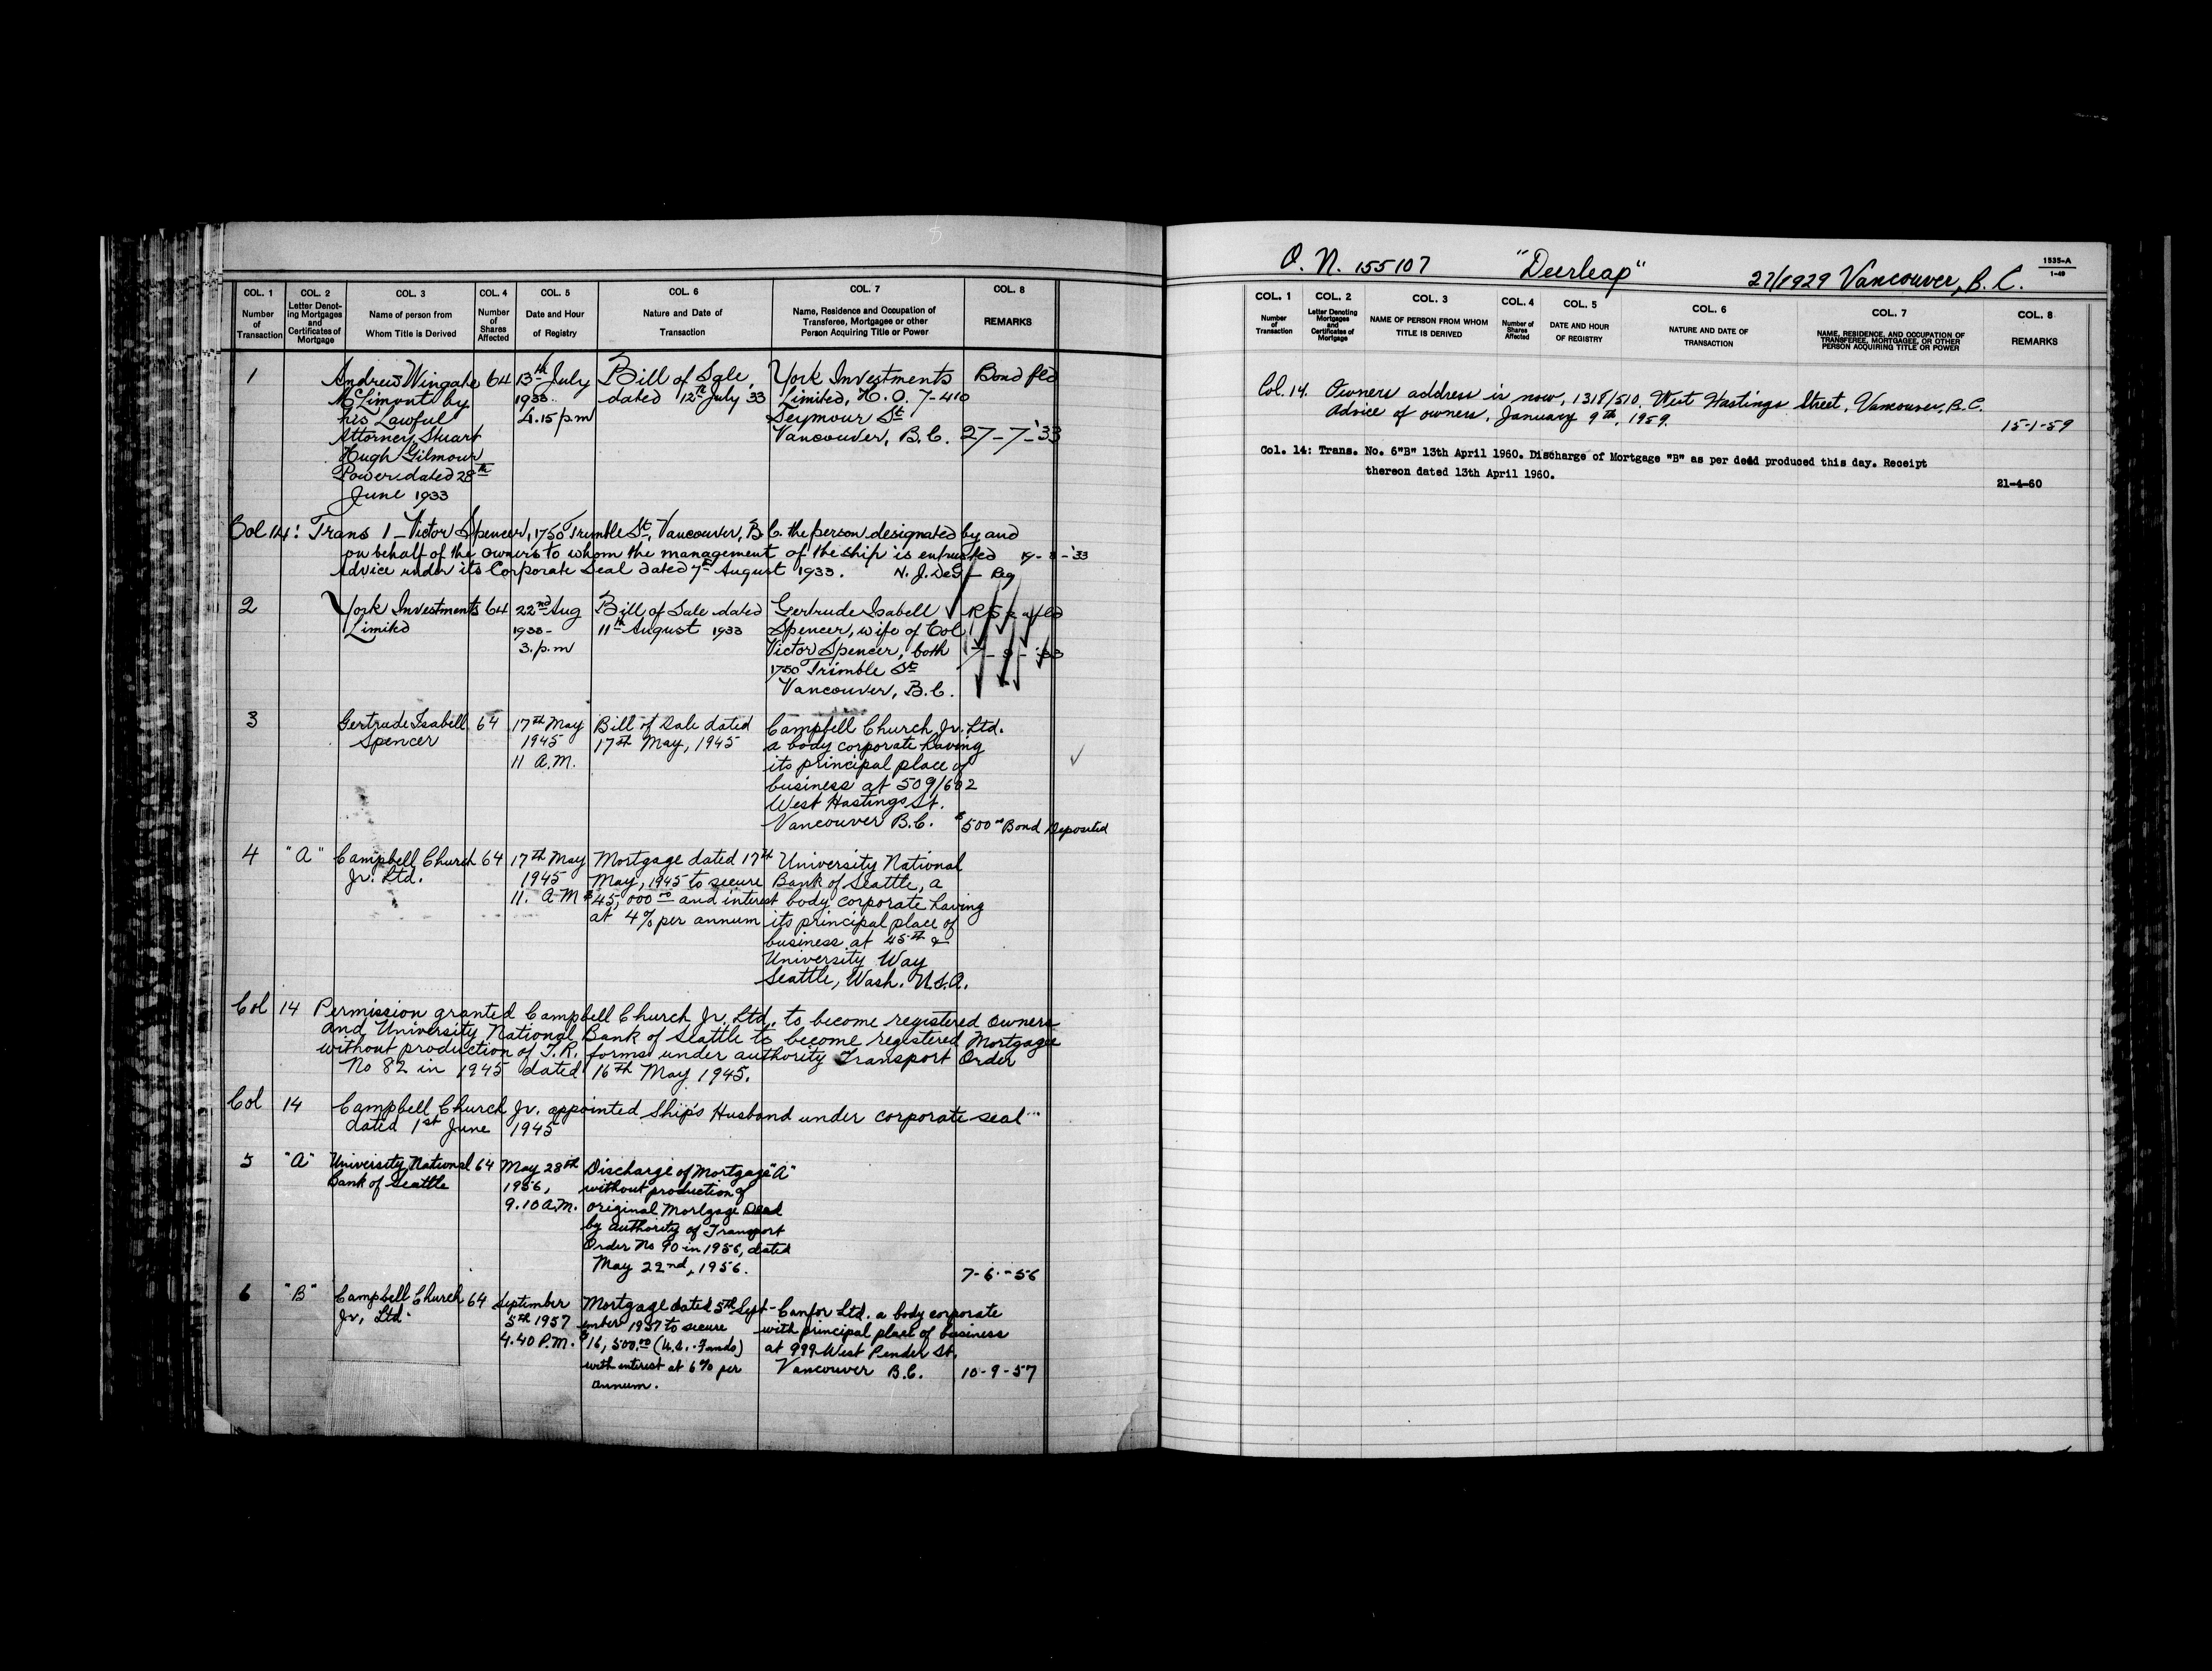 COL. 1 COL. 2 COL. 3 COL. 4 COL. 5 COL. 6 COL. 7 COL. 8
Number of Transaction
Letter Denoting Mortgages and Certificates of Mortgage
Name of person from Whom Title is Derived
Number of Shares Affected
Date and Hour of Registry
Nature and Date of Transaction
Name, Residence and Occupation of Transferee, Mortgagee or other Person Acquiring Title or Power
REMARKS
1 Andrew Wingate 64 13th July Bill of Sale, York Investments Bond fld
McLimont by 1933. dated 12th July '33 Limited, H.O. 7-410
his Lawful 4.15 p.m Seymour St
Attorney, Stuart Vancouver, B.C. 27-7-'33
Hugh Gilmour
Power dated 28th
June 1933
Col 14: Trans 1 - Victor Spencer, 1750 Trimble St, Vancouver, B.C. the person designated by and
on behalf of the owners to whom the management of the ship is entrusted 19-8-'33
Advice under its Corporate Seal dated 7th August 1933. Reg
2 York Investments 64 22nd Aug Bill of Sale dated Gertrude Isabell
Limited 1933- 11th August 1933 Spencer, wife of Col
3.p.m Victor Spencer, both 7-9-'33
1750 Trimble St
Vancouver, B.C.
3 Gertrude Isabell 64 17th May Bill of Sale dated Campbell Church, Jr. Ltd.
Spencer 1945 17th May, 1945 a body corporate having
11 A.M. its principal place of
business at 509/602
West Hastings St.
Vancouver B.C. $500.00 Bond Deposited
4 "A" Campbell Church 64 17th May Mortgage dated 17th University National
Jr. Ltd. 1945 May, 1945 to secure Bank of Seattle, a
11. A.M $45,000.00 and interest body corporate having
at 4% per annum its principal place of
business at 45th &
University Way
Seattle, Wash. U.S.A.
Col 14 Permission granted Campbell Church Jr. Ltd. to become registered owners
and University National Bank of Seattle to become registered Mortgagee
without production of T.R. forms under authority Transport Order
No 82 in 1945 dated 16th May 1945.
Col 14 Campbell Church Jr. appointed Ship's Husband under corporate seal
dated 1st June 1945
5 "A" University National 64 May 28th Discharge of Mortgage "A"
Bank of Seattle 1956, without production of
9.10 A.M. original Mortgage Deed
by authority of Transport
Order No 90 in 1956, dated
May 22nd, 1956.
7-6-56
6 "B" Campbell Church 64 September Mortgage dated 5th Sept- Canfor Ltd. a body corporate
Jr, Ltd. 5th 1957 ember 1957 to secure with principal place of business
4.40 P.M. $16,500.00 (U.S. Funds) at 999 West Pender St.
with interest at 6% per Vancouver B.C. 10-9-57
annum.
O. N. 155107 "Deerleap" 27/1929 Vancouver, B. C.
1535-A
1-49
COL. 1 COL. 2 COL. 3 COL. 4 COL. 5 COL. 6 COL. 7 COL. 8
Number of Transaction
Letter Denoting Mortgages and Certificates of Mortgage
NAME OF PERSON FROM WHOM TITLE IS DERIVED
Number of Shares Affected
DATE AND HOUR OF REGISTRY
NATURE AND DATE OF TRANSACTION
NAME, RESIDENCE, AND OCCUPATION OF TRANSFEREE, MORTGAGEE, OR OTHER PERSON ACQUIRING TITLE OR POWER
REMARKS
Col. 14. Owners address is now, 1318/510 West Hastings Street, Vancouver, B.C.
Advice of owners, January 9th, 1959.
15-1-59
Col. 14: Trans. No. 6"B" 13th April 1960. Discharge of Mortgage "B" as per deed produced this day. Receipt
thereon dated 13th April 1960.
21-4-60